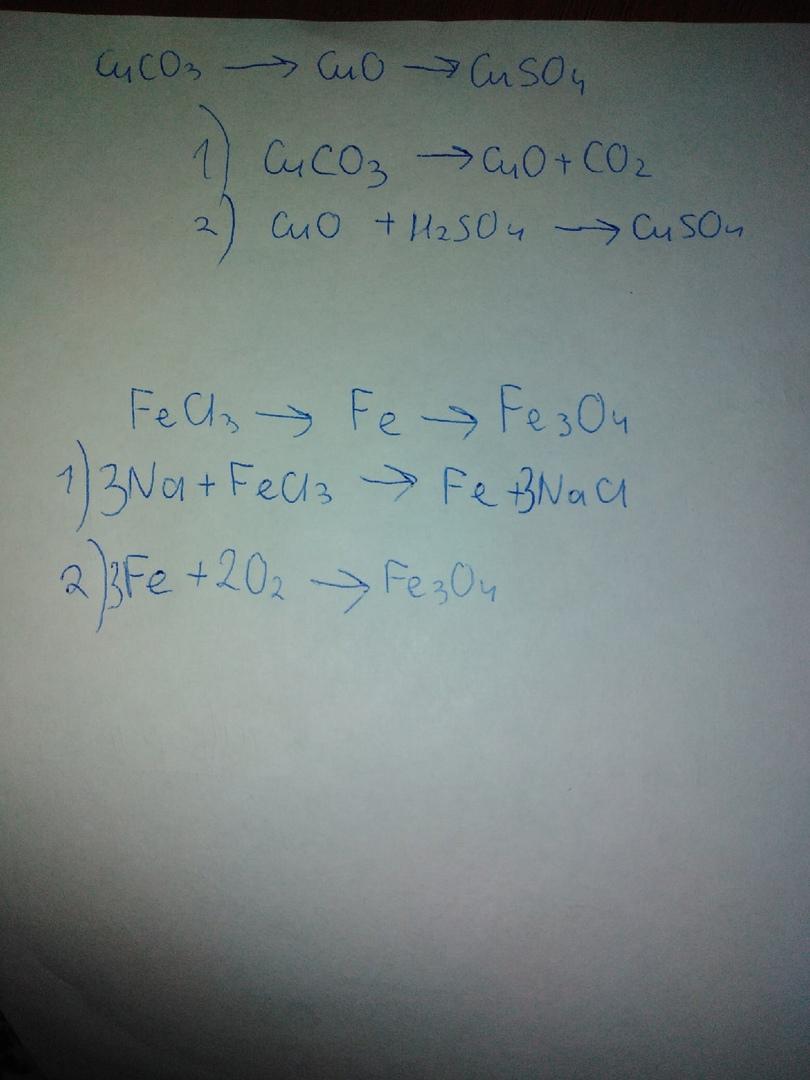 CuCO3 → CuO → CuSO4
1) CuCO3 → CuO + CO2
2) CuO + H2SO4 → CuSO4
FeCl3 → Fe → Fe3O4
1) 3Na + FeCl3 → Fe + 3NaCl
2) 3Fe + 2O2 → Fe3O4